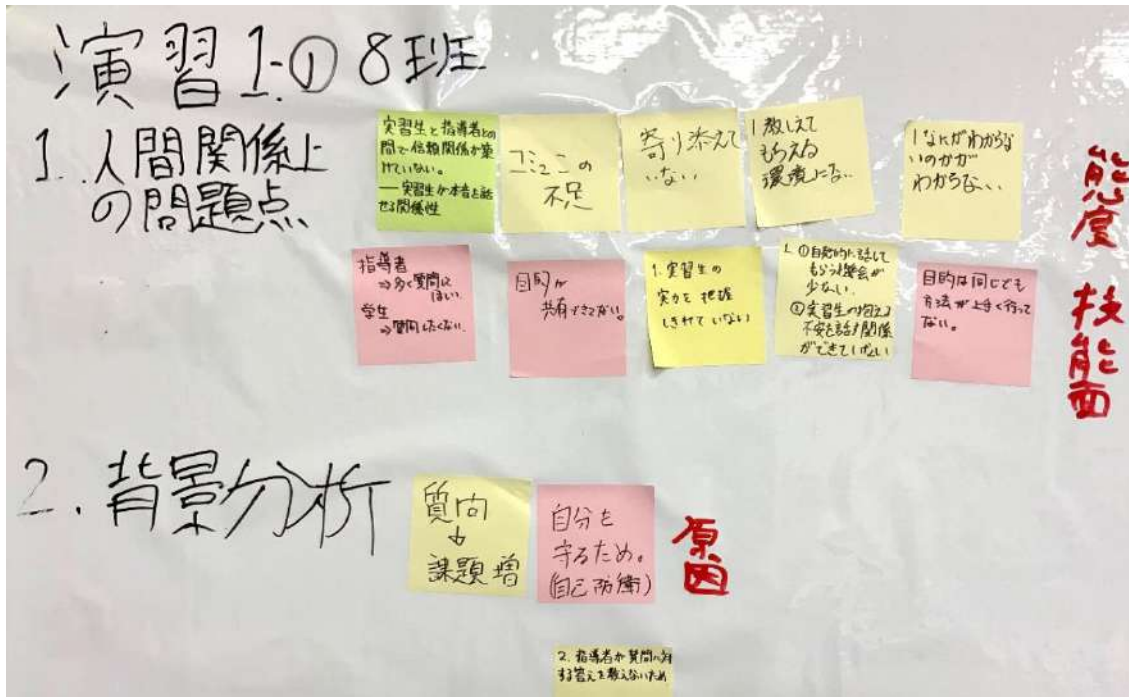 演習1.の① 8班
1. 人間関係上
の問題点
実習生と指導者との
間で信頼関係が築
けていない。
― 実習生が本音を話
せる関係性
コミュニの
不足
寄り添えて
いない
1 教えて
もらえる
環境にない
1なにがわからな
いのかが
わからない
能度
指導者
⇒多く質問して
ほしい。
学生
⇒質問したくない。
目的が
共有できてない。
1.実習生の
実力を把握
しきれていない
1. ①自発的に話して
もらう機会が
少ない。
②実習生の抱える
不安を話す関係
ができていない
目的は同じでも
方法が上手く行って
ない。
技能面
2. 背景分析
質問
↓
課題増
自分を
守るため。
(自己防衛)
原因
2. 指導者が質問に対
する答えを教えないため